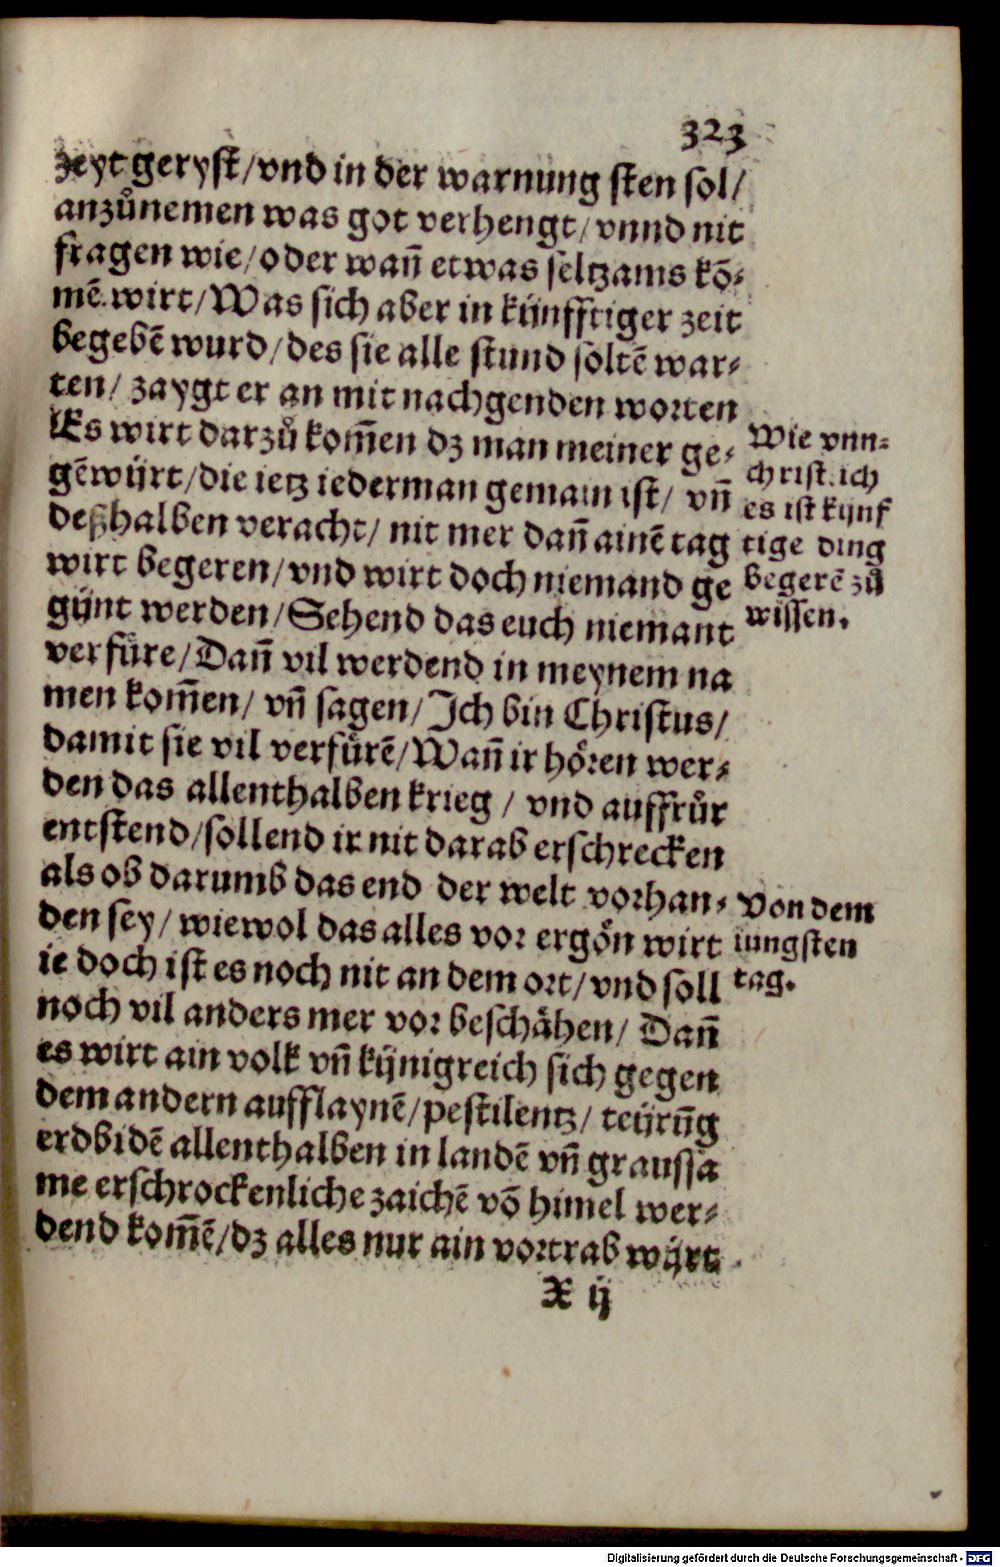 323
zeyt geryst/vnd in der warnung sten sol/
anzuͦnemen was got verhengt/vnnd nit
fragen wie/oder wañ etwas seltzams kõ-
mẽ wirt/Was sich aber in kijnfftiger zeit
begebẽ wurd/des sie alle stund soltẽ war-
ten/ zaygt er an mit nachgenden worten
Es wirt darzuͦ kom̃en dz man meiner ge-
gẽwijrt/die ietz iederman gemain ist/ vñ
deßhalben veracht/ nit mer dañ ainẽ tag
wirt begeren/vnd wirt doch niemand ge
gijnt werden/Sehend das euch niemant
verfuͤre/Dañ vil werdend in meynem na
men kom̃en/ vñ sagen/Ich bin Christus/
damit sie vil verfuͤrẽ/Wañ ir hoͤren wer-
den das allenthalben krieg / vnd auffruͦr
entstend/sollend ir nit darab erschrecken
als ob darumb das end der welt vorhan-
den sey/ wiewol das alles vor ergoͤn wirt
ie doch ist es noch nit an dem ort/vnd soll
noch vil anders mer vor beschaͤhen/ Dañ
es wirt ain volk vñ kijnigreich sich gegen
dem andern aufflaynẽ/pestilentz/ teijrũg
erdbidẽ allenthalben in landẽ vñ graussa
me erschrockenliche zaichẽ võ himel wer-
dend kom̃ẽ/dz alles nur ain vortrab wijrt
X ij
Wie vnn-
christlich
es ist kijnf
tige ding
begerẽ zuͦ
wissen.
Von dem
iungsten
tag.
Digitalisierung gefördert durch die Deutsche Forschungsgemeinschaft - DFG